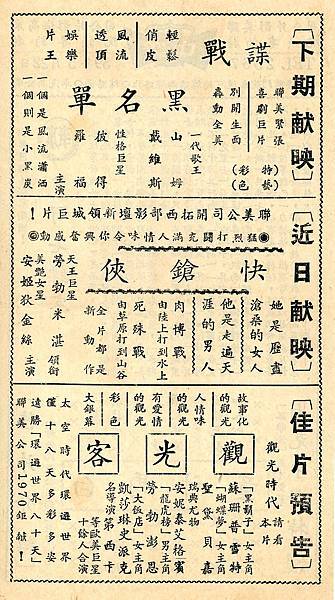 〔下期献映〕
聯美緊張
喜劇巨片
別開生面
轟動全美
(特藝)
(彩色)
諜戰
黑名單
輕鬆
俏皮
風流
透頂
娛樂
片王
一代歌王
山姆
戴維斯
性格巨星
彼得
羅福
主演
一個是風流瀟洒
一個則是小黑炭
〔近日献映〕
聯美公司開拓西部影壇新領城巨片！
◉猛烈打鬥充滿人情味令你興奮感動◉
快鎗俠
她是歷盡
滄桑的女人
他是走遍天
涯的男人
肉博戰
由陸上打到水上
死殊戰
由草原打到山谷
全片都是
新動作
天王巨星
勞勃米湛 領銜
美艷女星
安姬狄金絲 主演
〔佳片預告〕
觀光時代 請看本片
觀光客
故事化
的觀光
人情味
的觀光
有愛情
的觀光
彩色
大銀幕
「黑鬍子」女主角
蘇珊普雷特
「蝴蝶夢」女主角
聖黛貝嘉
瑞典尤物
安妮泰艾格寶
「龍虎榜」男主角
勞勃澎恩
「大飯店」女主角
凱莎琳史派克
名導演第西卡
等歐美巨星
十餘人合演
太空時代環遊世界
僅十八天多彩多姿
遠勝「環遊世界八十天」
聯美公司1970鉅獻！